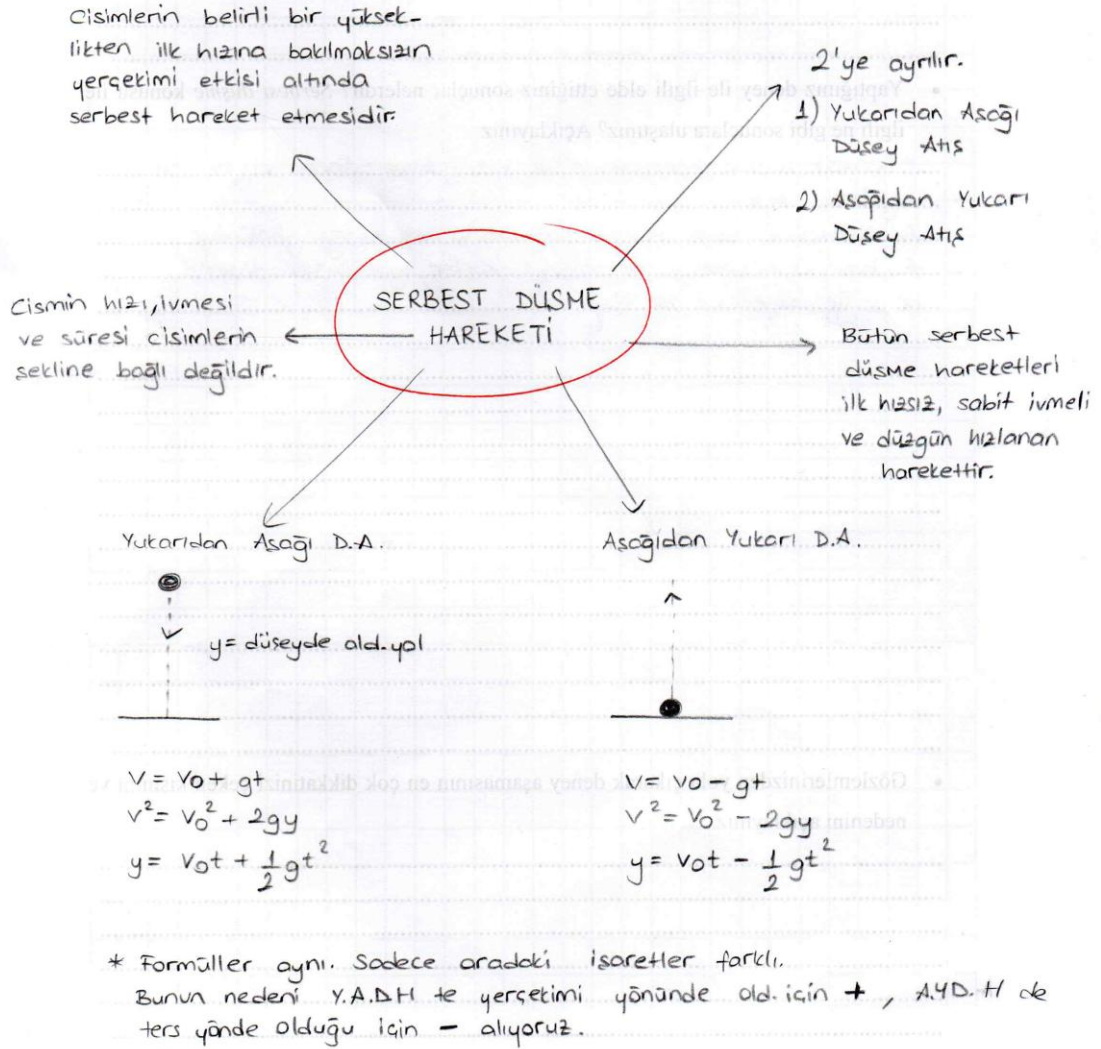 Cisimlerin belirli bir yüksek-
likten ilk hızına bakılmaksızın
yerçekimi etkisi altında
serbest hareket etmesidir.
2'ye ayrılır.
1) Yukarıdan Aşağı
Düşey Atış
2) Aşağıdan Yukarı
Düşey Atış
SERBEST DÜŞME
HAREKETİ
Cismin hızı, ivmesi
ve süresi cisimlerin
şekline bağlı değildir.
Bütün serbest
düşme hareketleri
ilk hızsız, sabit ivmeli
ve düzgün hızlanan
harekettir.
Yukarıdan Aşağı D.A.
y = düşeyde ald. yol
V = Vo + gt
v² = Vo² + 2gy
y = Vot + 1/2 gt²
Aşağıdan Yukarı D.A.
V = Vo - gt
v² = Vo² - 2gy
y = Vot - 1/2 gt²
* Formüller aynı. Sadece aradaki işaretler farklı.
Bunun nedeni Y.A.D.H te yerçekimi yönünde old. için + , A.Y.D.H de
ters yönde olduğu için - alıyoruz.